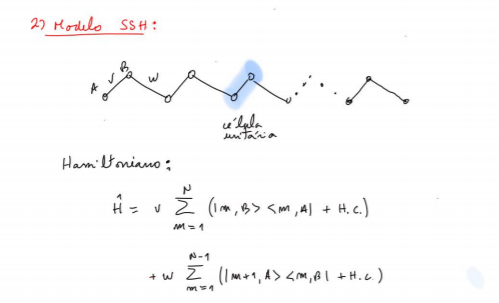 2) Modelo SSH:
A v B w
célula
unitária
Hamiltoniano:
Ĥ = v ∑_{m=1}^{N} (|m,B> <m,A| + H.c.)
+ w ∑_{m=1}^{N-1} (|m+1,A> <m,B| + H.c.)